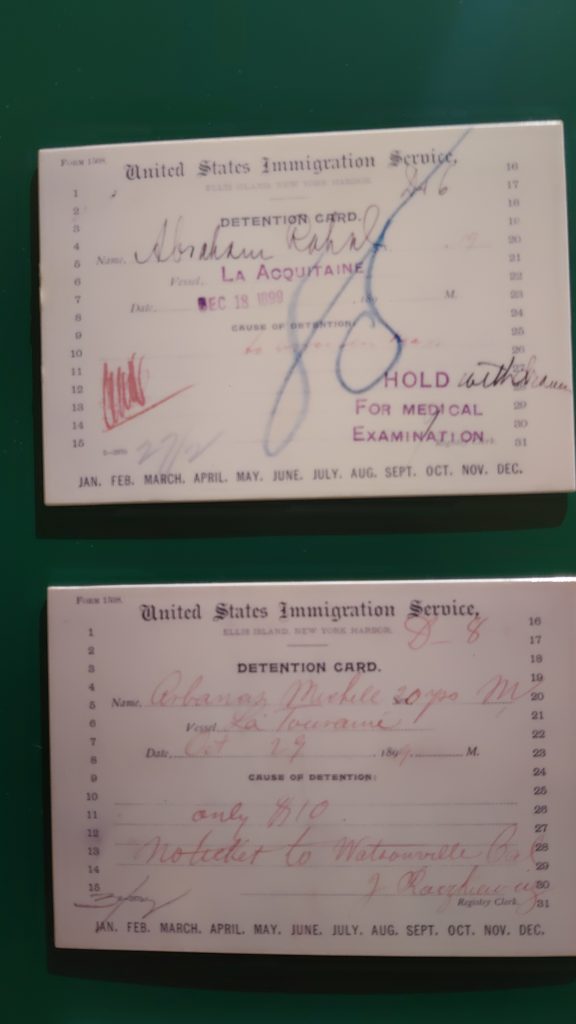 Form 1508.
United States Immigration Service,
ELLIS ISLAND, NEW YORK HARBOR.
246
DETENTION CARD.
Name, Abraham Rahal
Vessel, LA ACQUITAINE
Date, DEC 18 1899 189 M.
CAUSE OF DETENTION:
86
HOLD with
FOR MEDICAL
EXAMINATION
1 2 3 4 5 6 7 8 9 10 11 12 13 14 15
16 17 18 19 20 21 22 23 24 25 26 27 28 29 30 31
JAN. FEB. MARCH. APRIL. MAY. JUNE. JULY. AUG. SEPT. OCT. NOV. DEC.
Form 1508.
United States Immigration Service,
ELLIS ISLAND, NEW YORK HARBOR.
D_8
DETENTION CARD.
Name, Arbanas Michele 20 yrs M
Vessel La Touraine
Date, Oct 29 1899 M.
CAUSE OF DETENTION:
only $10
No ticket to Watsonville Cal
Registry Clerk.
1 2 3 4 5 6 7 8 9 10 11 12 13 14 15
16 17 18 19 20 21 22 23 24 25 26 27 28 29 30 31
JAN. FEB. MARCH. APRIL. MAY. JUNE. JULY. AUG. SEPT. OCT. NOV. DEC.